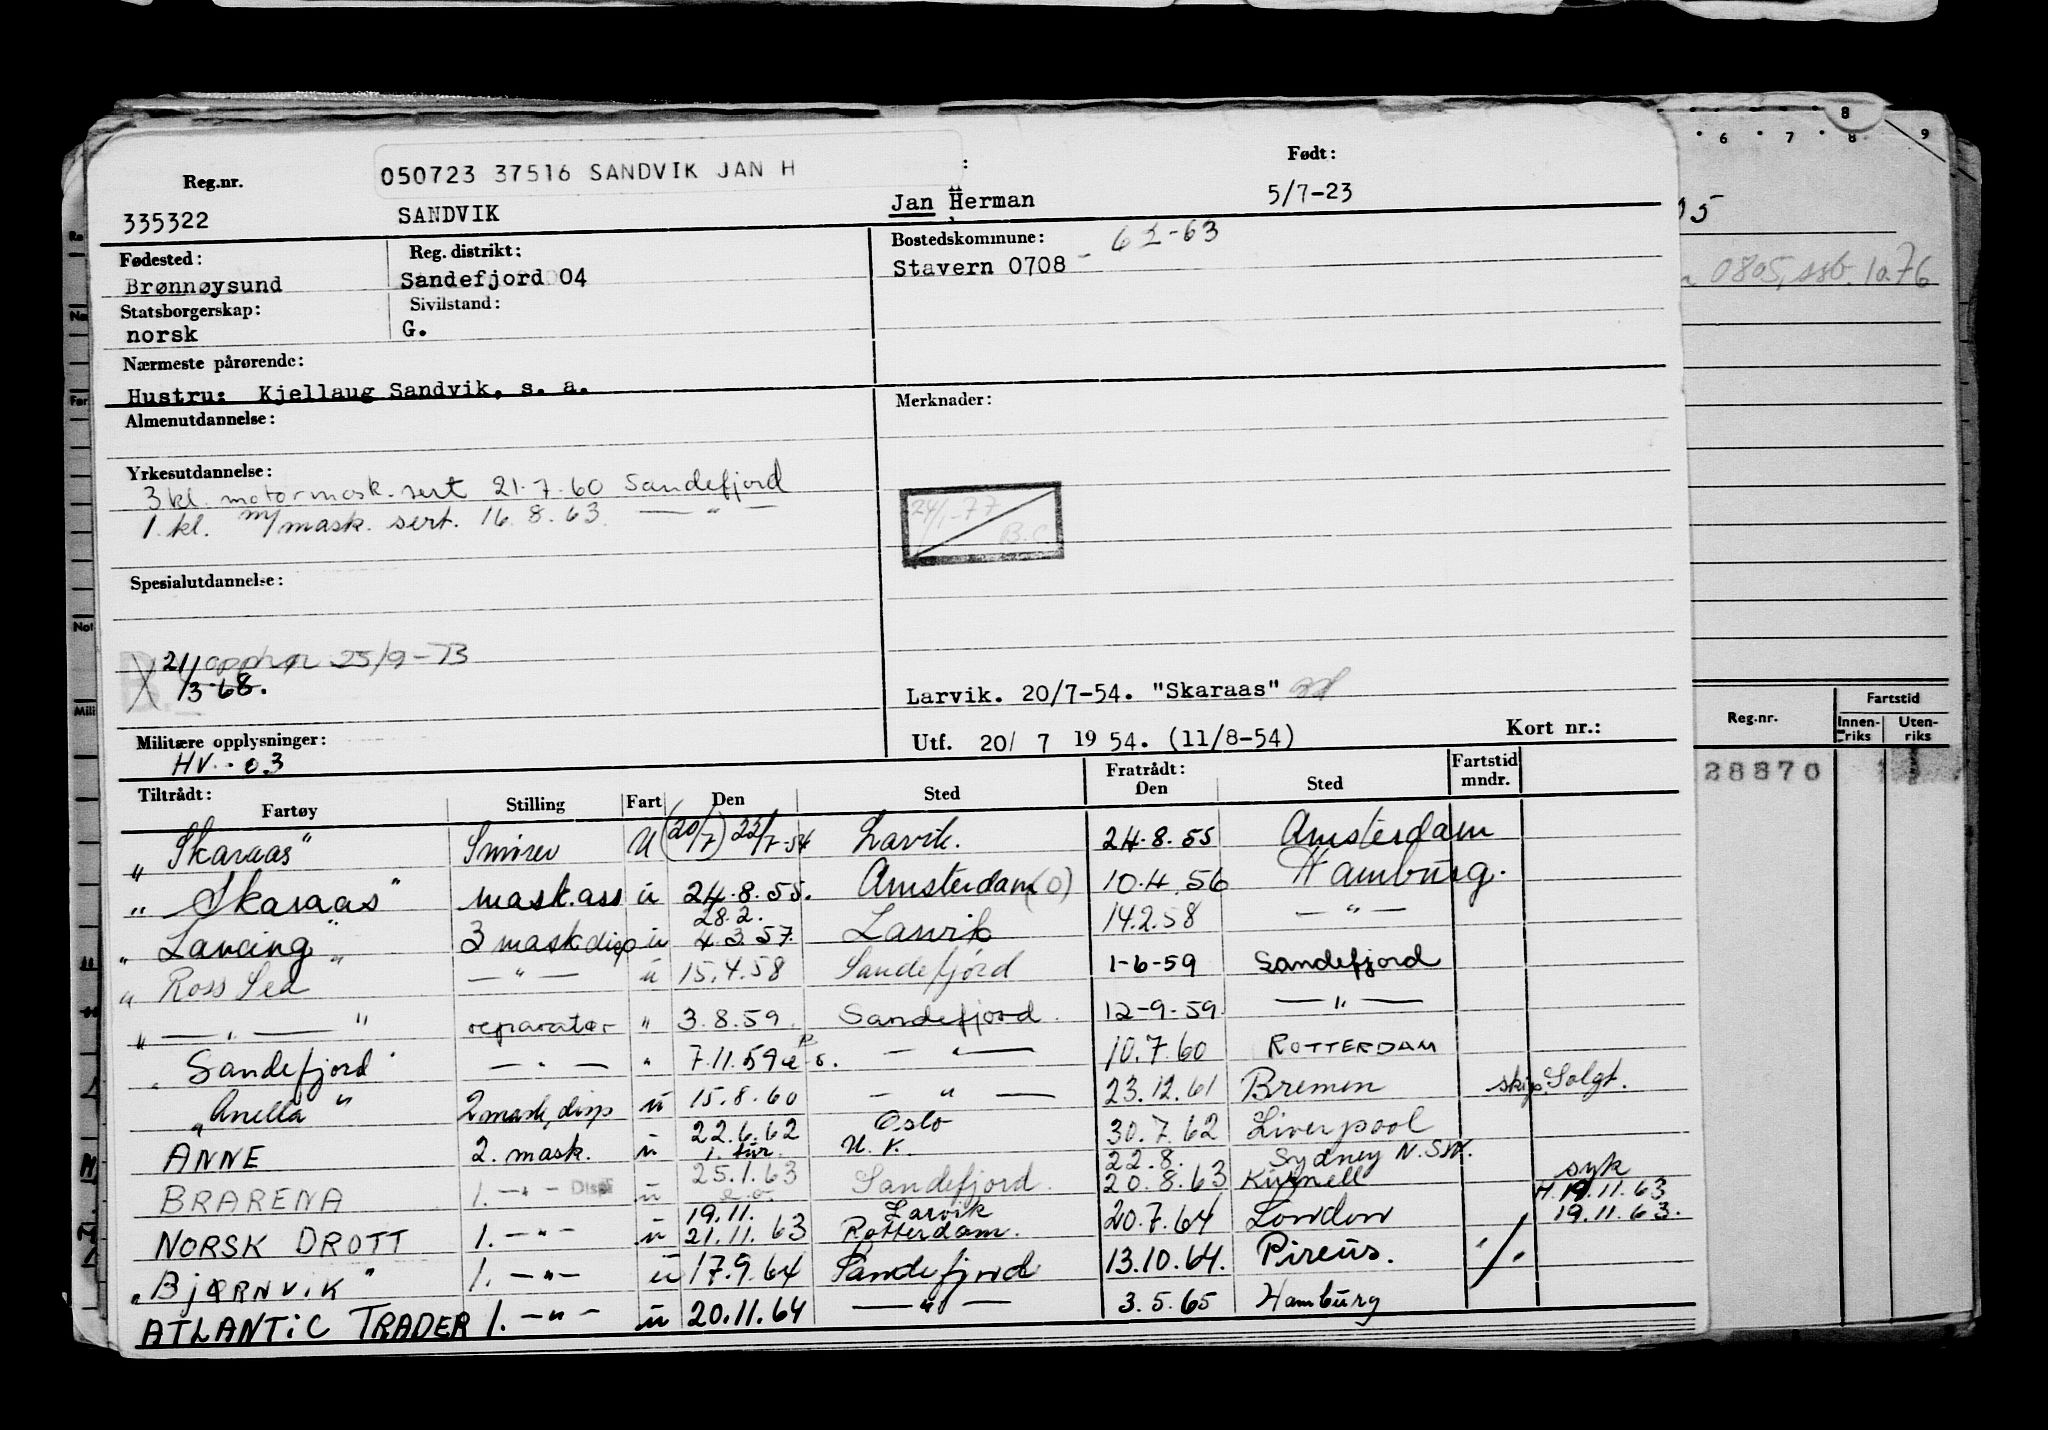 050723 37516 SANDVIK JAN H
Reg.nr. Født:
335322 SANDVIK Jan Herman 5/7-23
Fødested: Reg. distrikt: Bostedskommune: 62-63
Brønnøysund Sandefjord 04 Stavern 0708
Statsborgerskap: Sivilstand:
norsk G.
Nærmeste pårørende:
Hustru: Kjellaug Sandvik, s. a.
Almenutdannelse: Merknader:
Yrkesutdannelse:
3 kl. motormask. sert 21.7.60 Sandefjord
1. kl. m/mask. sert. 16.8.63 — " —
24/1-77
B.C
Spesialutdannelse:
21/3-68. opphør 25/9-73
Larvik. 20/7-54. "Skaraas"
Militære opplysninger: Utf. 20/ 7 19 54. (11/8-54) Kort nr.:
HV - 03
Tiltrådt: Fratrådt: Fartstid
Fartøy Stilling Fart Den Sted Den Sted mndr.
"Skaraas" Smører U (20/7) 22/7-54 Larvik. 24.8.55 Amsterdam
"Skaraas" mask.ass u 24.8.55. Amsterdam (0) 10.4.56 Hamburg.
"Lancing" 3 mask disp u 28.2. 4.3.57. Larvik 14.2.58 — " —
"Ross Sea" — " — u 15.4.58 Sandefjord 1-6-59 Sandefjord
" — " — " reparatør " 3.8.59. Sandefjord. 12-9-59. — " —
"Sandefjord" — " — " 7.11.59 — " — 10.7.60 ROTTERDAM
"Anella" 2 mask, disp u 15.8.60 — " — 23.12.61 Bremen skip Solgt.
ANNE 2. mask. u 22.6.62 Oslo 30.7.62 Liverpool
1. tur. U.K. 22.8. Sydney N.SW.
BRARENA 1. — " — Disp u 25.1.63 Sandefjord. 20.8.63 Kurnell syk
H. 19.11.63
NORSK DROTT 1. — " — u 19.11. 21.11.63 Larvik Rotterdam. 20.7.64 London 19.11.63.
"BJØRNVIK" 1. — " — u 17.9.64 Sandefjord 13.10.64. Pireus. ./.
ATLANTIC TRADER 1. — " — u 20.11.64 — " — 3.5.65 Hamburg
8
6 7 8 9
05
0805, ssb. 1076
Reg.nr. Fartstid
Innenriks Utenriks
28870